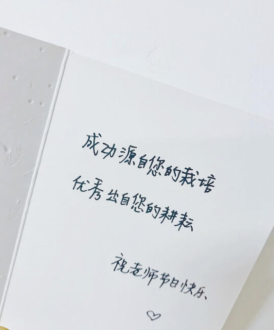 成功源自您的栽培
优秀出自您的耕耘
祝老师节日快乐